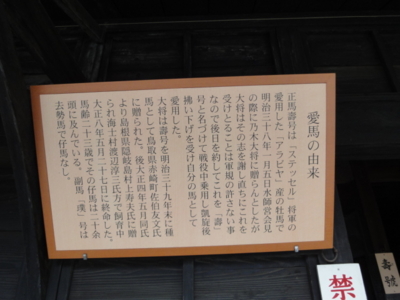 愛馬の由来
正馬壽号は「ステッセル」将軍の
愛用した「アラビヤ」産の牡馬で
明治三十八年一月五日水師営会見
の際に乃木大将に贈らんとしたが
大将はその志を謝し直ちにこれを
受けとることは軍規の許さない事
なので後日を約してこれを「壽」
号と名づけて戦役中乗用し凱旋後
拂い下げを受け自分の馬として
愛用した。
大将は壽号を明治三十九年末に種
馬として鳥取県赤崎町佐伯友文氏
に贈られた。後大正四年五月同氏
より島根県隠岐島村上寿夫氏に贈
られ海士村渡辺淳三氏方で飼育中
大正八年五月二十七日に終命した。
馬齢二十三歳でその仔馬は二十余
頭に及んでいる。副馬「璞」号は
去勢馬で仔馬なし。
壽號
禁